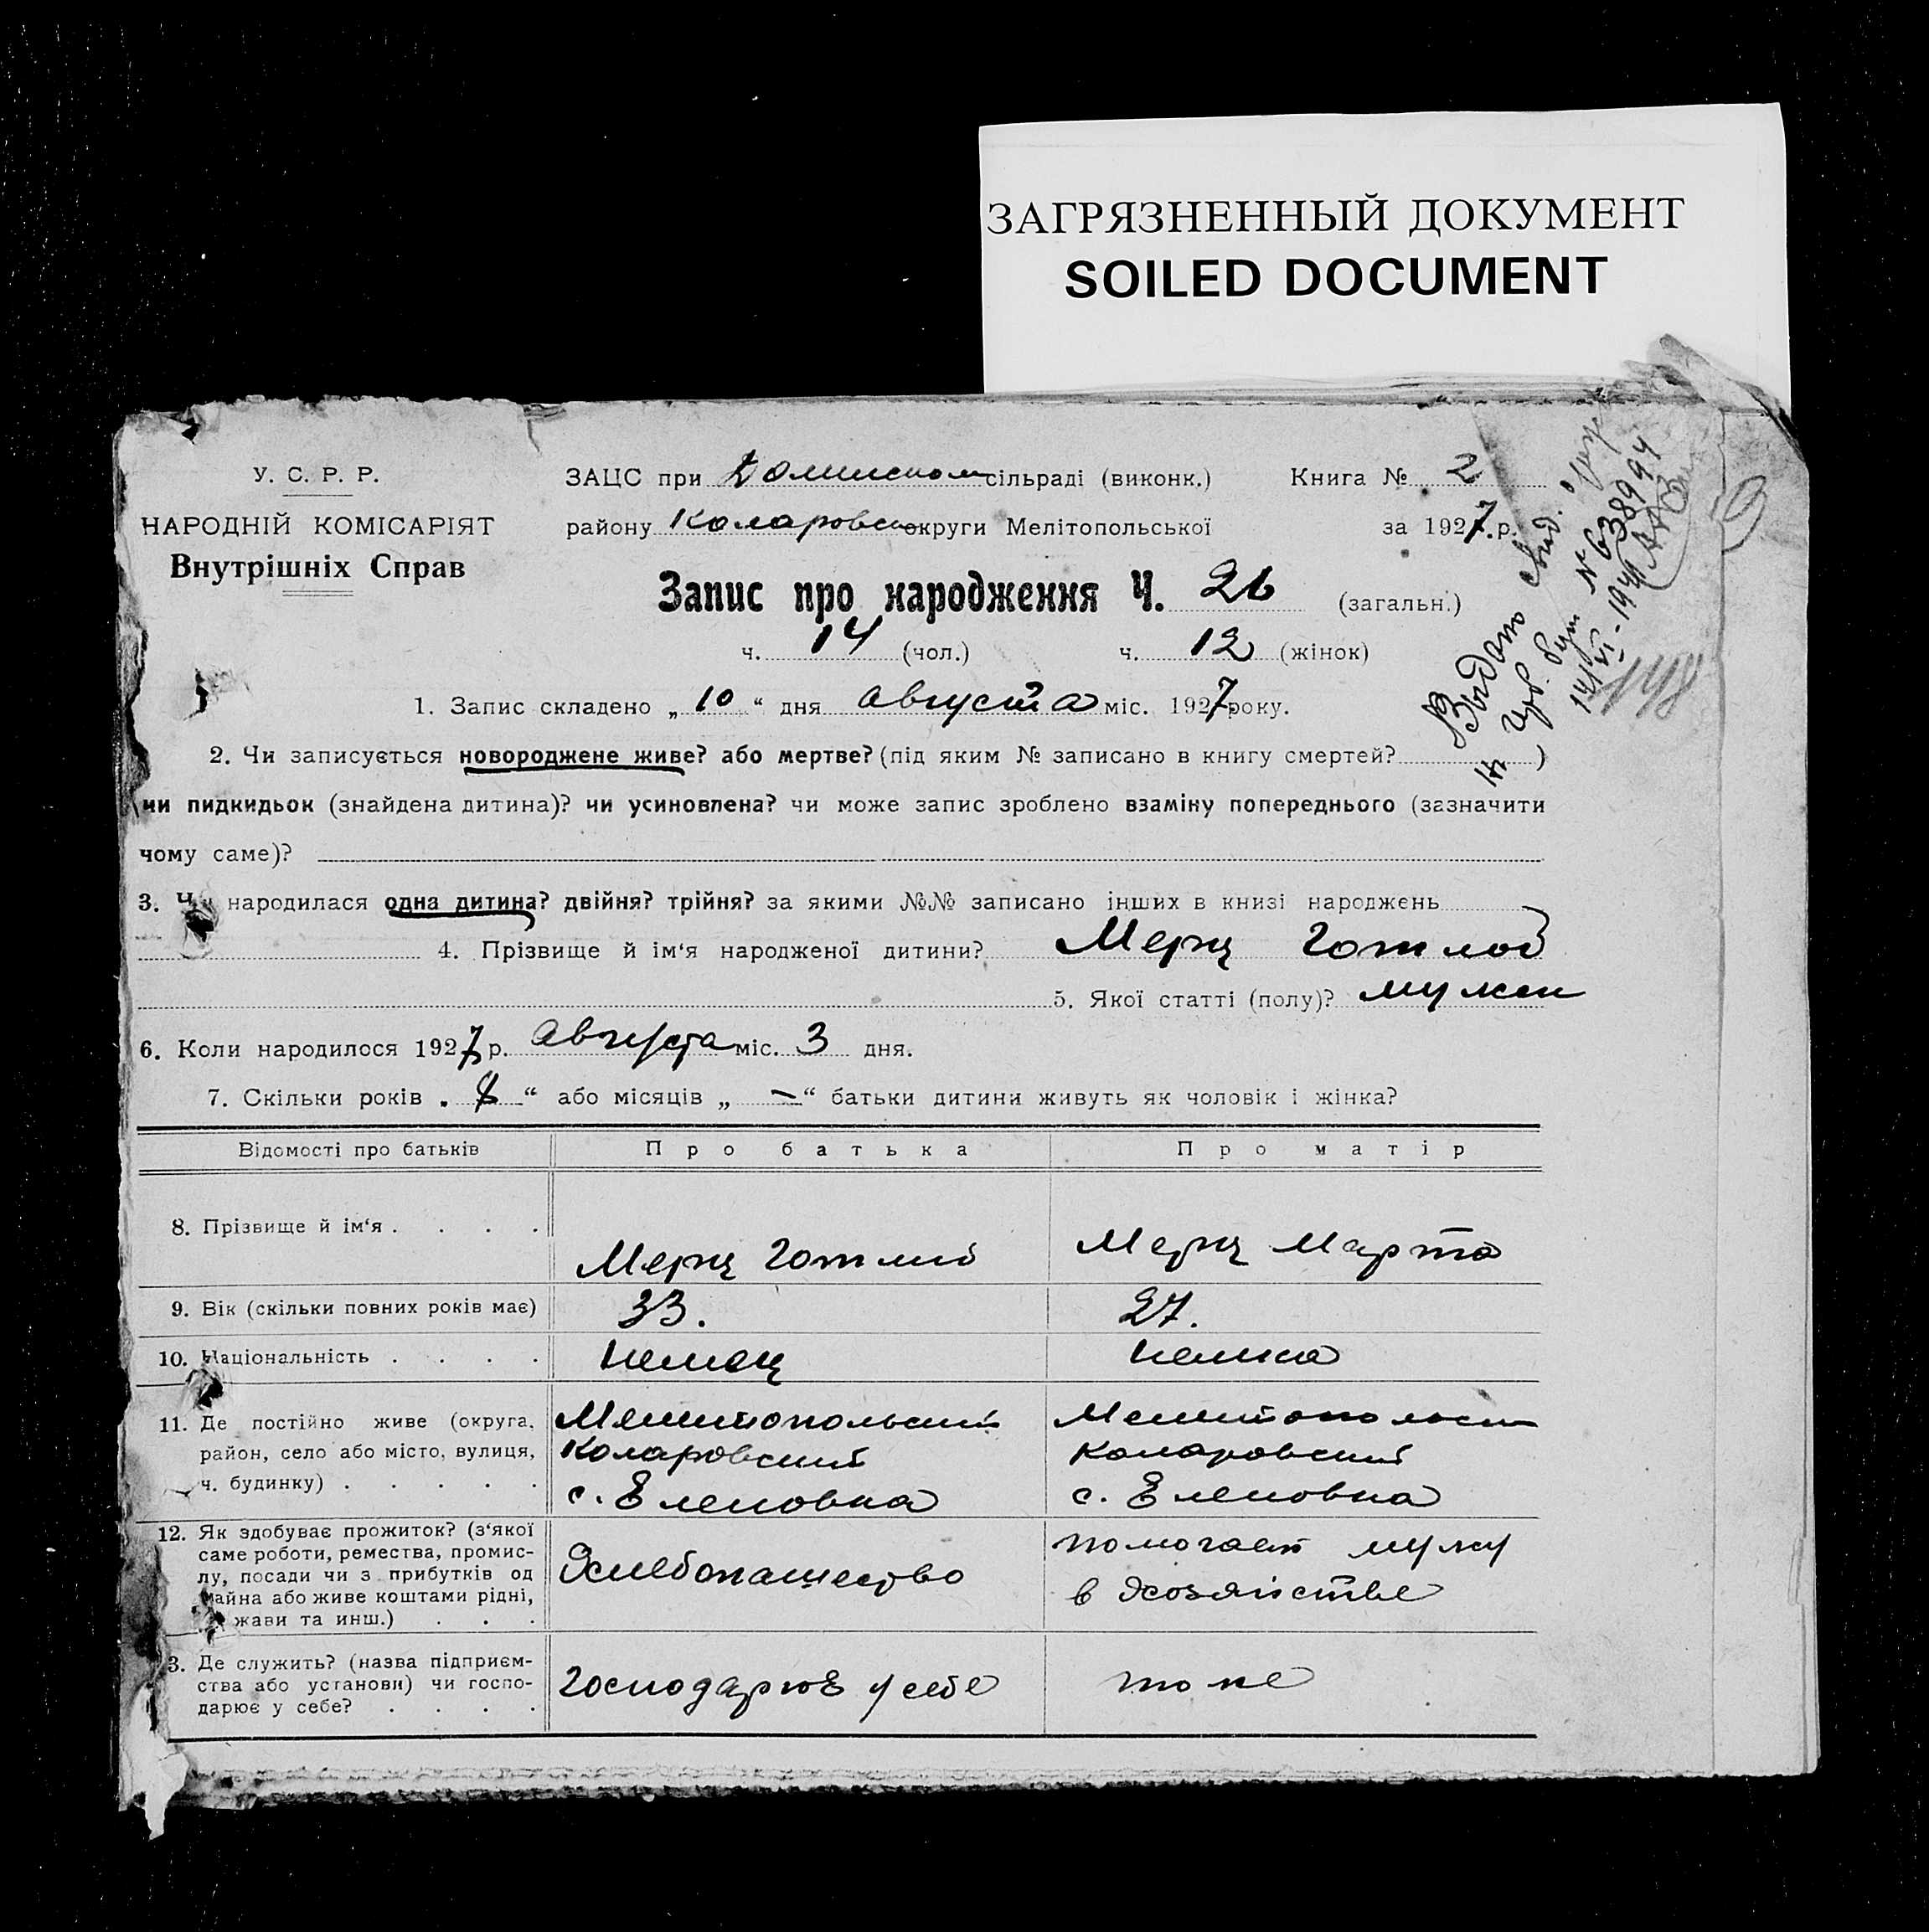 ЗАГРЯЗНЕННЫЙ ДОКУМЕНТ
SOILED DOCUMENT
У. С. Р. Р.
НАРОДНІЙ КОМІСАРІЯТ
Внутрішніх Справ
ЗАЦС при сільраді (виконк.) Книга № 2
району Коларовско округи Мелітопольської за 1927.р.
Запис про народження Ч. 26 (загальн.)
ч. 14 (чол.) ч. 12 (жінок)
Выдано свид.
№ 638994
148
1. Запис складено „ 10 “ дня августа міс. 1927 року.
2. Чи записується новороджене живе? або мертве? (під яким № записано в книгу смертей? )
чи пидкидьок (знайдена дитина)? чи усиновлена? чи може запис зроблено взаміну попереднього (зазначити
чому саме)?
3. Чи народилася одна дитина? двійня? трійня? за якими №№ записано інших в книзі народжень
4. Прізвище й ім‘я народженої дитини? Мерц Готлиб
5. Якої статті (полу)? мужск
6. Коли народилося 1927 р. августа міс. 3 дня.
7. Скільки років „ 8 “ або місяців „ — “ батьки дитини живуть як чоловік і жінка?
Відомості про батьків Про батька Про матір
8. Прізвище й ім‘я . . . . Мерц Готлиб Мерц Марта
9. Вік (скільки повних років має) 33. 27.
10. Національність . . . . Немец Немка
11. Де постійно живе (округа, Мелитопольский Мелитопольск
район, село або місто, вулиця, Коларовский Коларовский
ч. будинку) . . . . . с. Еленовка с. Еленовка
12. Як здобуває прожиток? (з‘якої
саме роботи, ремества, промис-
лу, посади чи з прибутків од
майна або живе коштами рідні,
жави та инш.) . . .
Хлебопашество
помогает мужу
в хозяйстве
3. Де служить? (назва підприєм-
ства або установи) чи госпо-
дарює у себе? . . . .
Господарює у себе
тоже